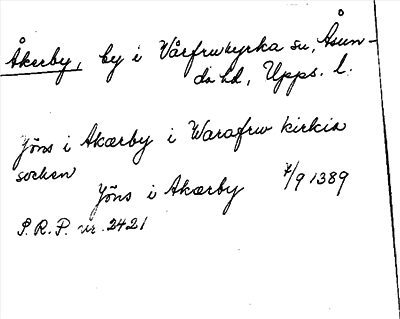 Åkerby, by i Vårfrukyrka sn, Åsun-
da hd, Upps. l.
Jöns i Akærby i Warafrw kirkia
sochen
Jöns i Akærby 7/9 1389
P.R.P. nr. 2421